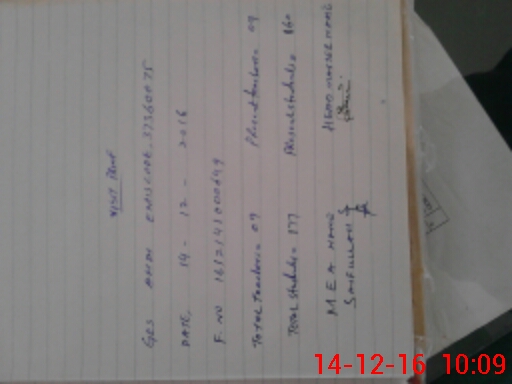 VISIT Proof
GBS EMIS CODE. 37360075
DATE, 14 - 12 - 2016
F. NO 16121410006
Total teachers = 09 Present teachers = 09
Total students = 177 Present students = 160
M E A NAME HEAD MASTER NAME
SAIFULLAH
14-12-16 10:09